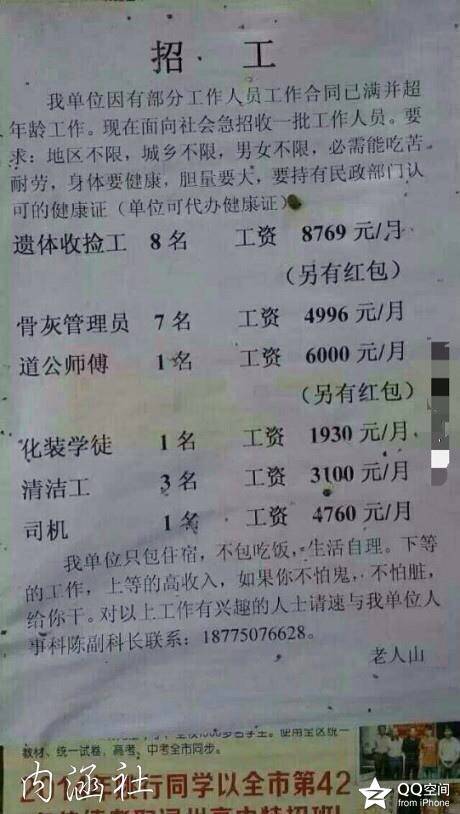 招 工
我单位因有部分工作人员工作合同已满并超
年龄工作。现在面向社会急招收一批工作人员。要
求：地区不限，城乡不限，男女不限，必需能吃苦
耐劳，身体要健康，胆量要大，要持有民政部门认
可的健康证（单位可代办健康证）
遗体收捡工 8名 工资 8769 元/月
（另有红包）
骨灰管理员 7名 工资 4996 元/月
道公师傅 1名 工资 6000 元/月
（另有红包）
化装学徒 1名 工资 1930 元/月
清洁工 3名 工资 3100 元/月
司机 1名 工资 4760 元/月
我单位只包住宿，不包吃饭，生活自理。下等
的工作，上等的高收入，如果你不怕鬼，不怕脏，
给你干。对以上工作有兴趣的人士请速与我单位人
事科陈副科长联系：18775076628。
老人山
使用全区统一
教材、统一试卷，高考、中考全市同步。
行同学以全市第42
内涵社
QQ空间
from iPhone